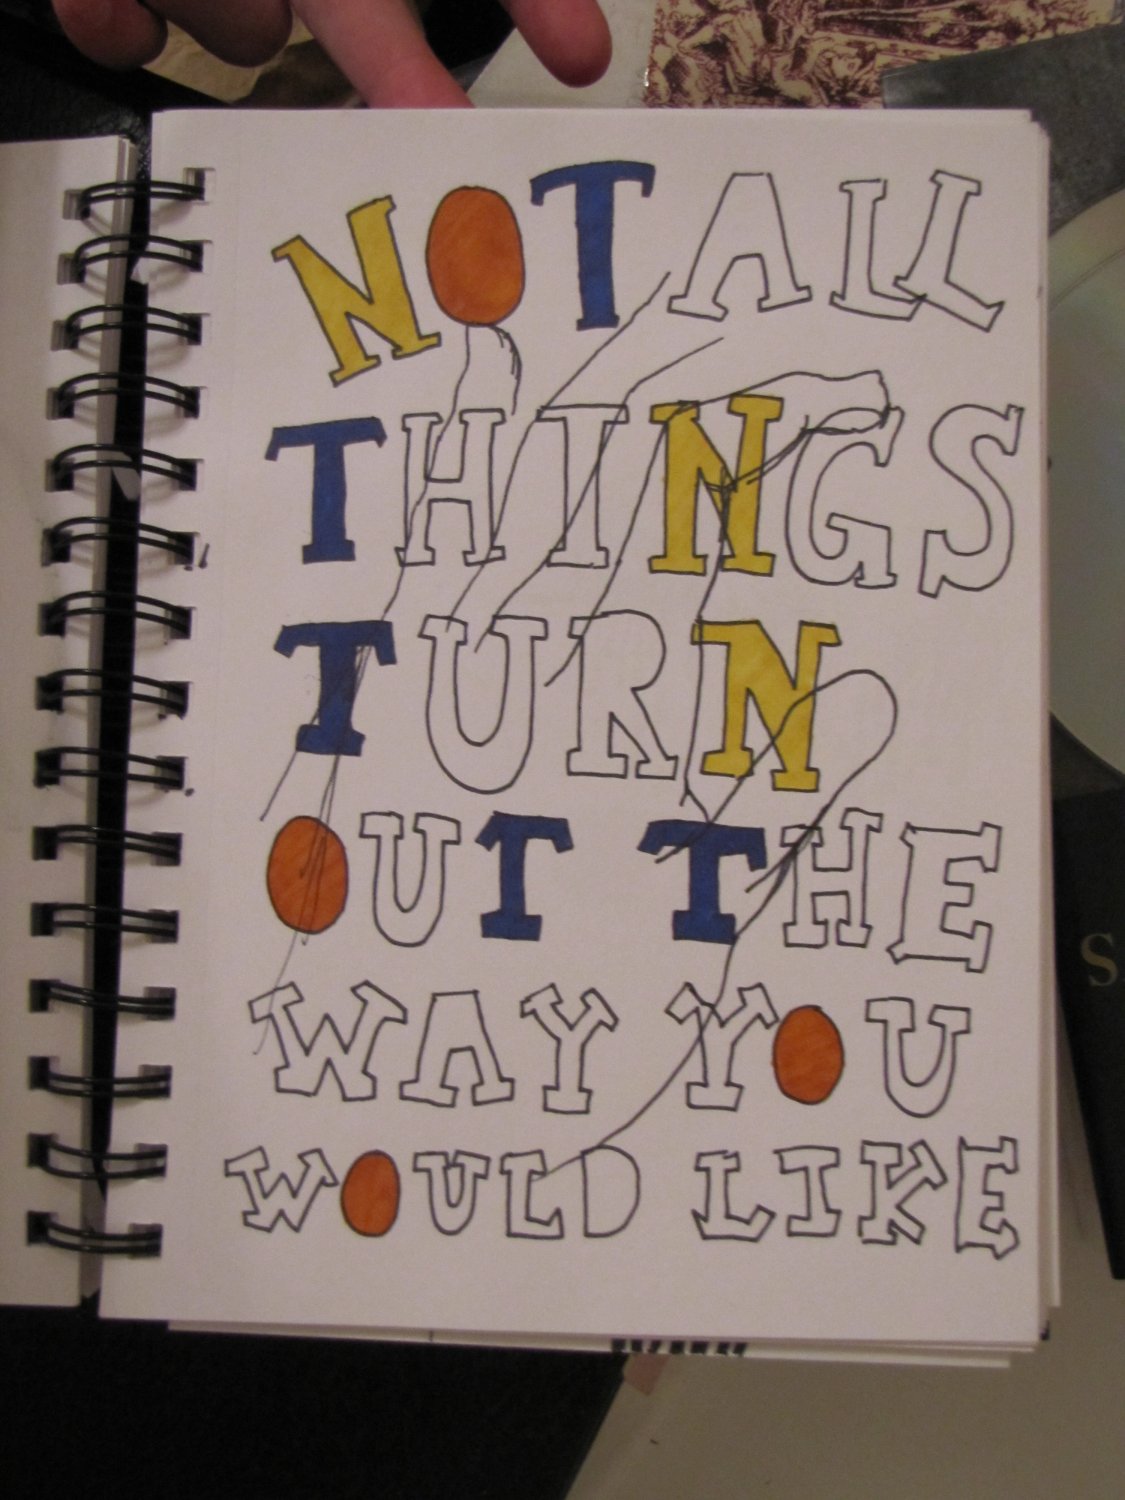 NOT ALL
THINGS
TURN
OUT THE
WAY YOU
WOULD LIKE
S